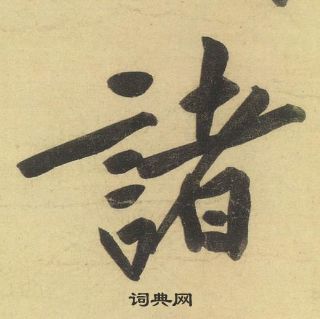 諸
词典网